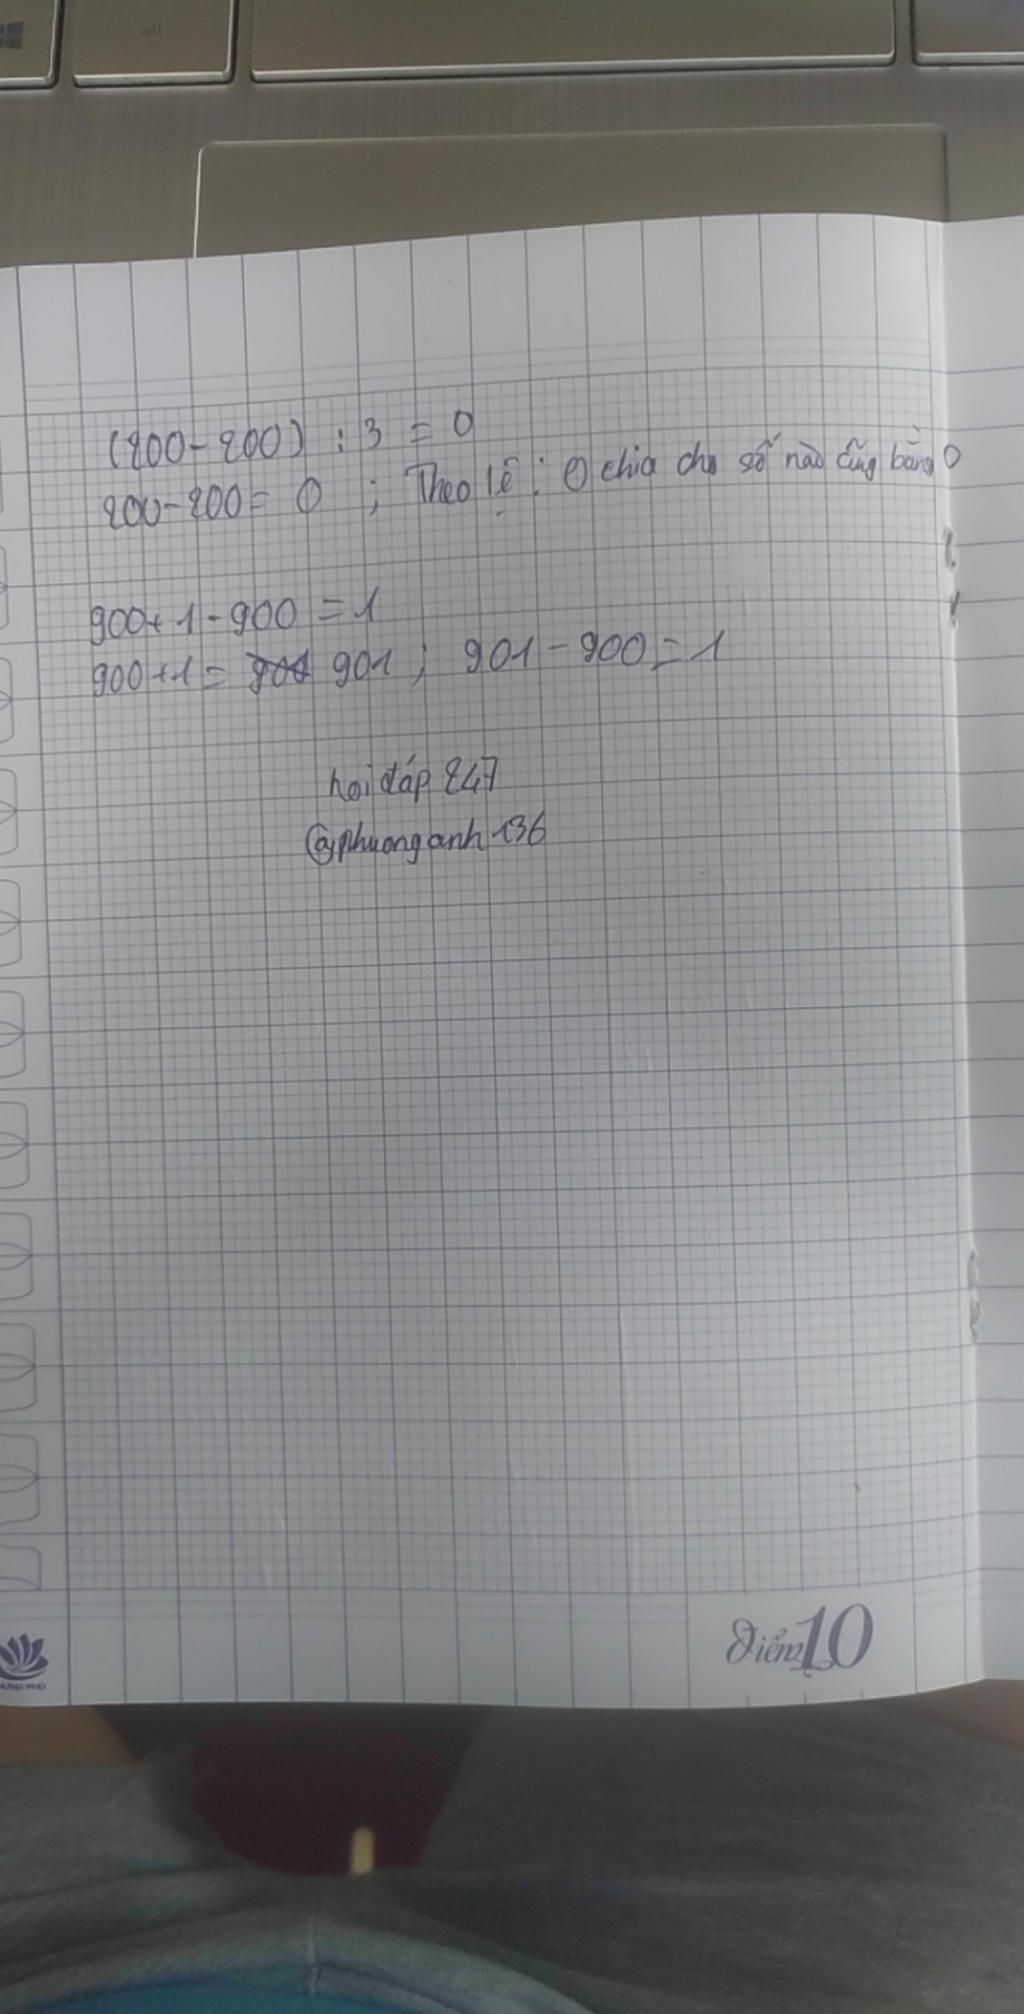 alt
(200-200) : 3 = 0
200-200= 0 ; Theo lệ : 0 chia cho số nào cũng bằng 0
900+1-900 = 1
900+1= 901 ; 901-900=1
hoi đáp 247
@phuonganh136
Điểm 10